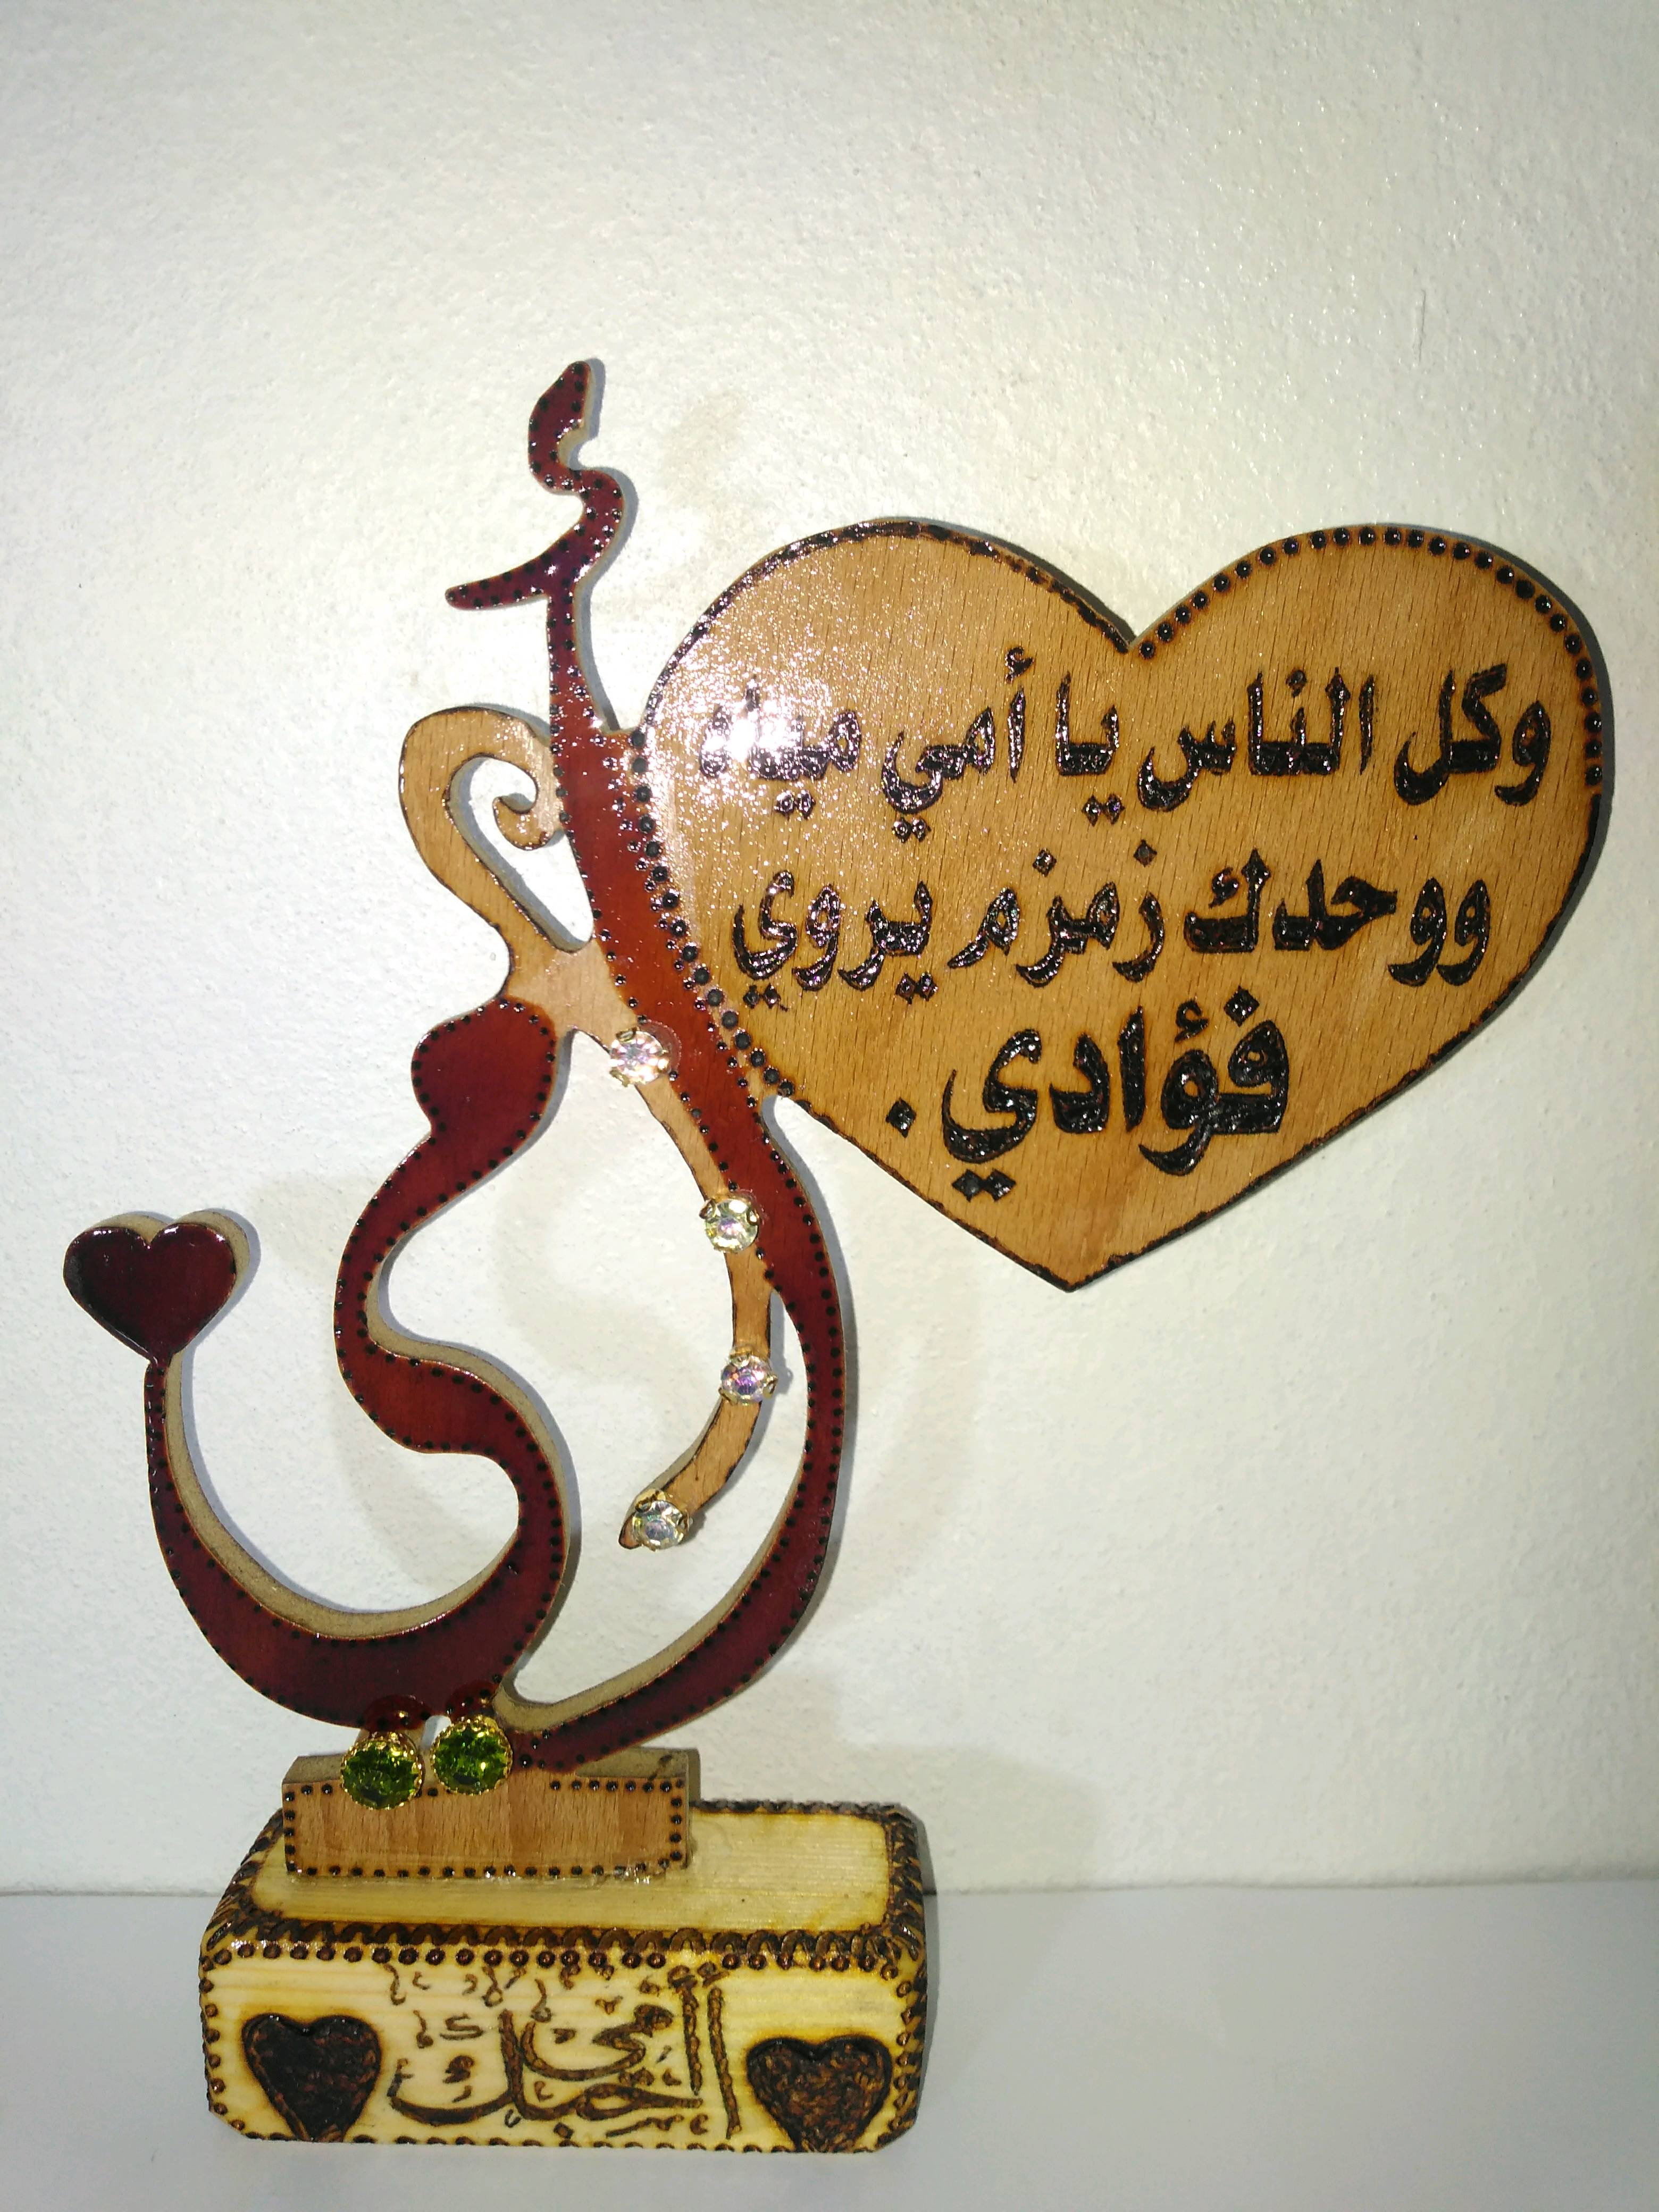 أمي
وكل الناس يا أمي مياه
ووحدك زمزم يروي
فؤادي.
أحبك أمي